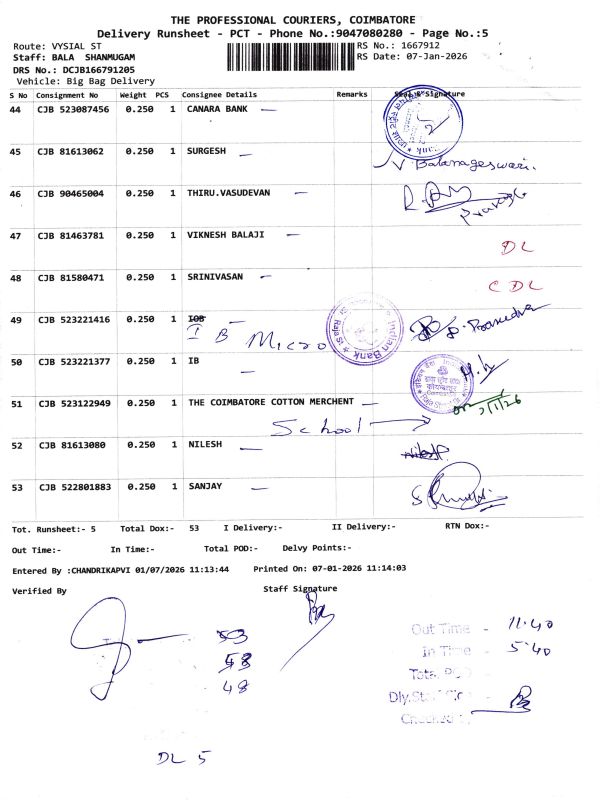 THE PROFESSIONAL COURIERS, COIMBATORE
Delivery Runsheet - PCT - Phone No.:9047080280 - Page No.:5
Route: VYSIAL ST
RS No.: 1667912
Staff: BALA SHANMUGAM
RS Date: 07-Jan-2026
DRS No.: DCJB166791205
Vehicle: Big Bag Delivery
S No Consignment No Weight PCS Consignee Details Remarks Seal & Signature
44 CJB 523087456 0.250 1 CANARA BANK —
45 CJB 81613062 0.250 1 SURGESH —
N Balanageswari.
46 CJB 90465004 0.250 1 THIRU.VASUDEVAN —
47 CJB 81463781 0.250 1 VIKNESH BALAJI —
DL
48 CJB 81580471 0.250 1 SRINIVASAN —
CDL
49 CJB 523221416 0.250 1 IOB —
IB Micro
Indian Bank
50 CJB 523221377 0.250 1 IB
—
51 CJB 523122949 0.250 1 THE COIMBATORE COTTON MERCHENT —
School
52 CJB 81613080 0.250 1 NILESH —
53 CJB 522801883 0.250 1 SANJAY —
Tot. Runsheet:- 5 Total Dox:- 53 I Delivery:- II Delivery:- RTN Dox:-
Out Time:- In Time:- Total POD:- Delvy Points:-
Entered By :CHANDRIKAPVI 01/07/2026 11:13:44 Printed On: 07-01-2026 11:14:03
Verified By Staff Signature
Out Time - 11.40
In Time - 5.40
53
58
48
DL 5